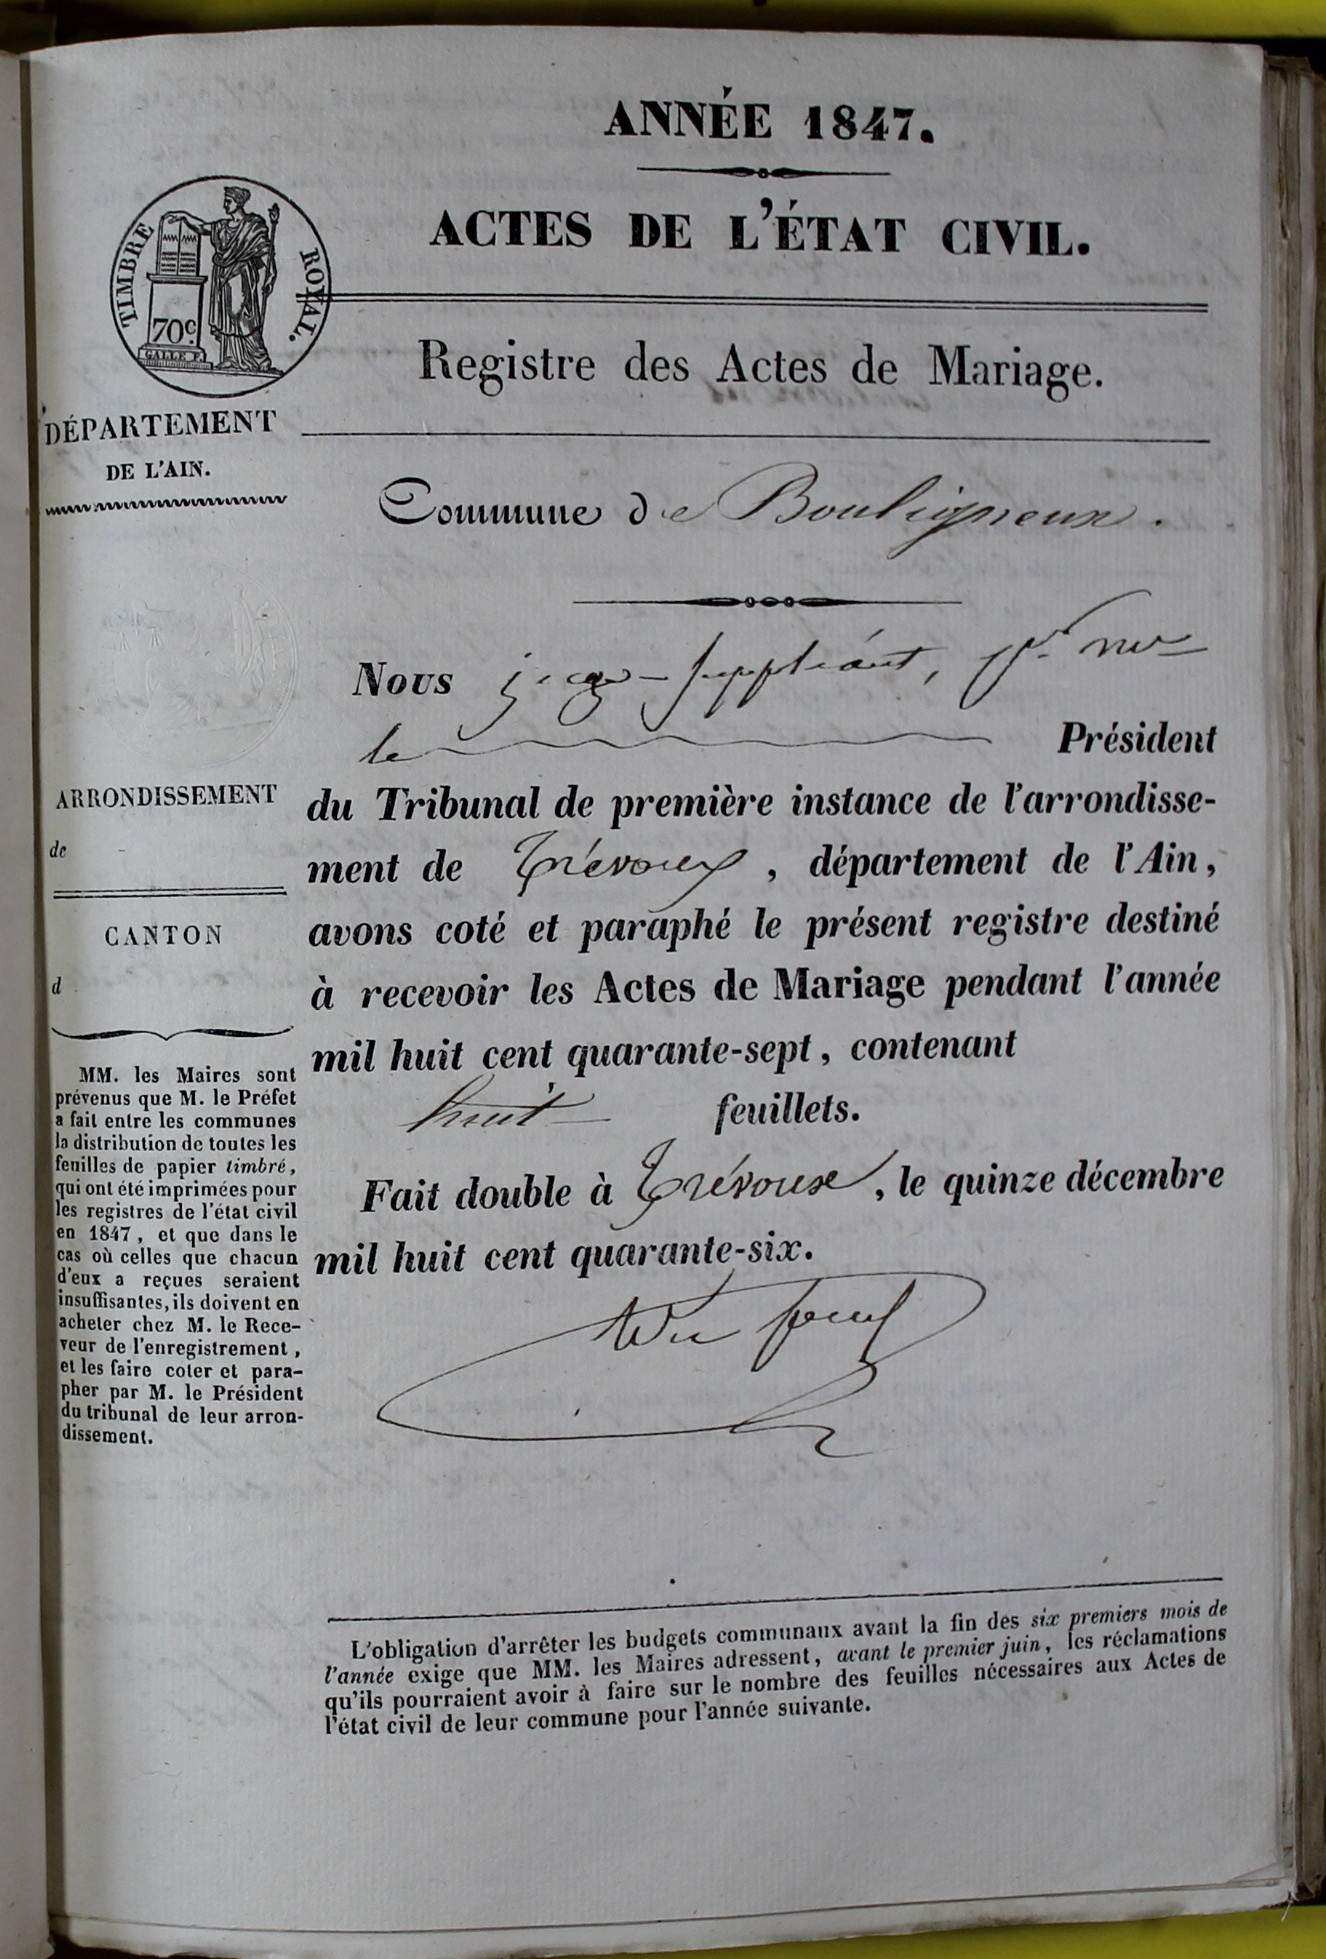 ANNÉE 1847.
ACTES DE L'ÉTAT CIVIL.
TIMBRE ROYAL.
70c.
GALLE F.
Registre des Actes de Mariage.
DÉPARTEMENT
DE L'AIN.
Commune de Bouligneux.
Nous juge suppléant, pr. mr
le Président
du Tribunal de première instance de l'arrondisse-
ment de Trévoux, département de l'Ain,
avons coté et paraphé le présent registre destiné
à recevoir les Actes de Mariage pendant l'année
mil huit cent quarante-sept, contenant
huit feuillets.
Fait double à Trévoux, le quinze décembre
mil huit cent quarante-six.
ARRONDISSEMENT
de
CANTON
d
MM. les Maires sont
prévenus que M. le Préfet
a fait entre les communes
la distribution de toutes les
feuilles de papier timbré,
qui ont été imprimées pour
les registres de l'état civil
en 1847, et que dans le
cas où celles que chacun
d'eux a reçues seraient
insuffisantes, ils doivent en
acheter chez M. le Rece-
veur de l'enregistrement,
et les faire coter et para-
pher par M. le Président
du tribunal de leur arron-
dissement.
L'obligation d'arrêter les budgets communaux avant la fin des six premiers mois de
l'année exige que MM. les Maires adressent, avant le premier juin, les réclamations
qu'ils pourraient avoir à faire sur le nombre des feuilles nécessaires aux Actes de
l'état civil de leur commune pour l'année suivante.